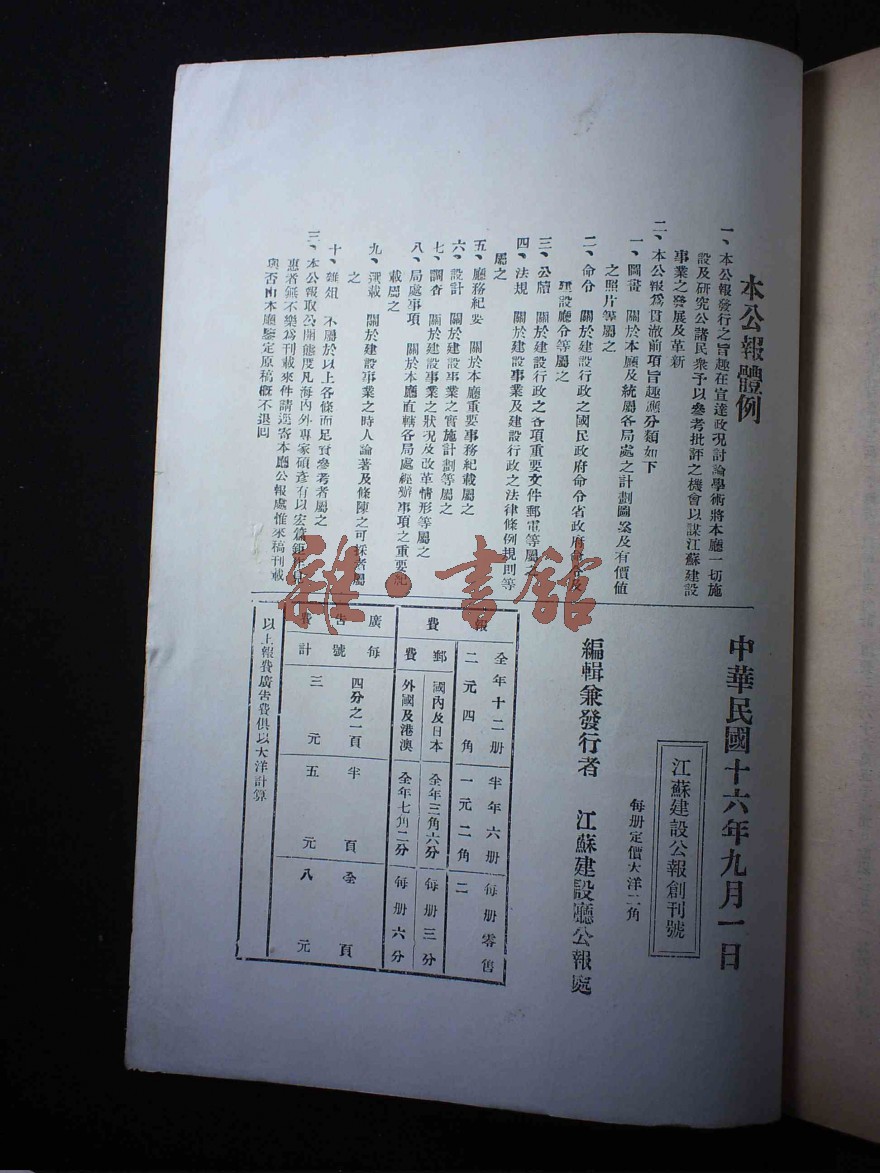 本公報體例
一、本公報發行之旨趣在宣達政况討論學術將本廳一切施
設及研究公諸民衆予以參考批評之機會以謀江蘇建設
事業之發展及革新
二、本公報爲貫澈前項旨趣應分類如下
一、圖畫 關於本廳及統屬各局處之計劃圖案及有價値
之照片等屬之
二、命令 關於建設行政之國民政府命令省政府命令及
建設廳令等屬之
三、公牘 關於建設行政之各項重要文件郵電等屬之
四、法規 關於建設事業及建設行政之法律條例規則等
屬之
五、廳務紀要 關於本廳重要事務紀載屬之
六、設計 關於建設事業之實施計劃等屬之
七、調查 關於建設事業之狀况及改革情形等屬之
八、局處事項 關於本廳直轄各局處經辦事項之重要紀
載屬之
九、選載 關於建設事業之時人論著及條陳之可採者屬
之
十、雜俎 不屬於以上各條而足資參考者屬之
三、本公報取公開態度凡海內外專家碩彥有以宏篇鉅作見
惠者無不樂爲刊載來件請逕寄本廳公報處惟來稿刊載
與否由本廳鑒定原稿槪不退回
中華民國十六年九月一日
江蘇建設公報創刊號
每册定價大洋二角
編輯兼發行者 江蘇建設廳公報處
報費
全年十二册 半年六册 每册零售
二元四角 一元二角 二
郵費
國內及日本 全年三角六分 每册三分
外國及港澳 全年七角二分 每册六分
廣告費
每號計
四分之一頁 半頁 全頁
三元 五元 八元
以上報費廣告費俱以大洋計算
雜·書館